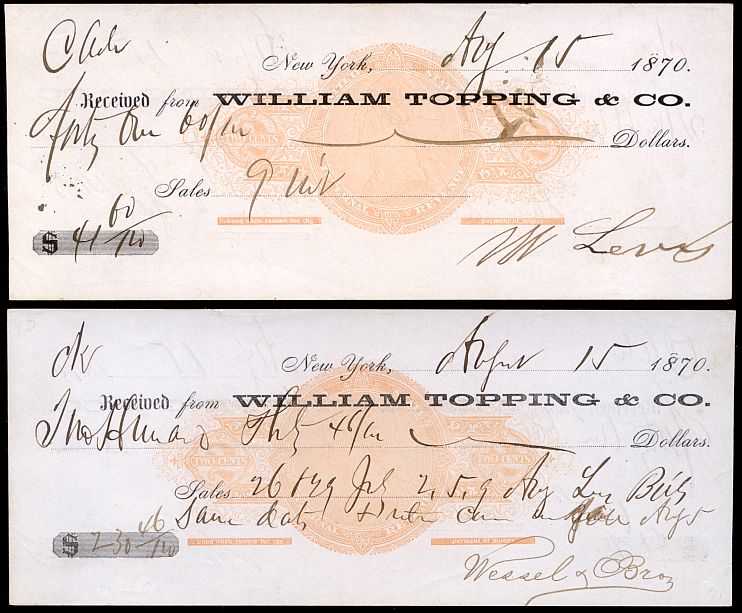 Cash
New York, Aug 15 1870.
Received from WILLIAM TOPPING & CO.
forty one 60/100 Dollars.
Sales 9
Good when issued for the payment of money.
$ 41 60/100
TWO CENTS
New York, August 15 1870.
Received from WILLIAM TOPPING & CO.
Two Hundred Thty 46/100 Dollars.
TWO CENTS TWO CENTS
Sales 26 & 29 July 2, 5, 9 Aug
Same date
Good when issued for the payment of money.
$ 230 46/100
Wessel & Bros